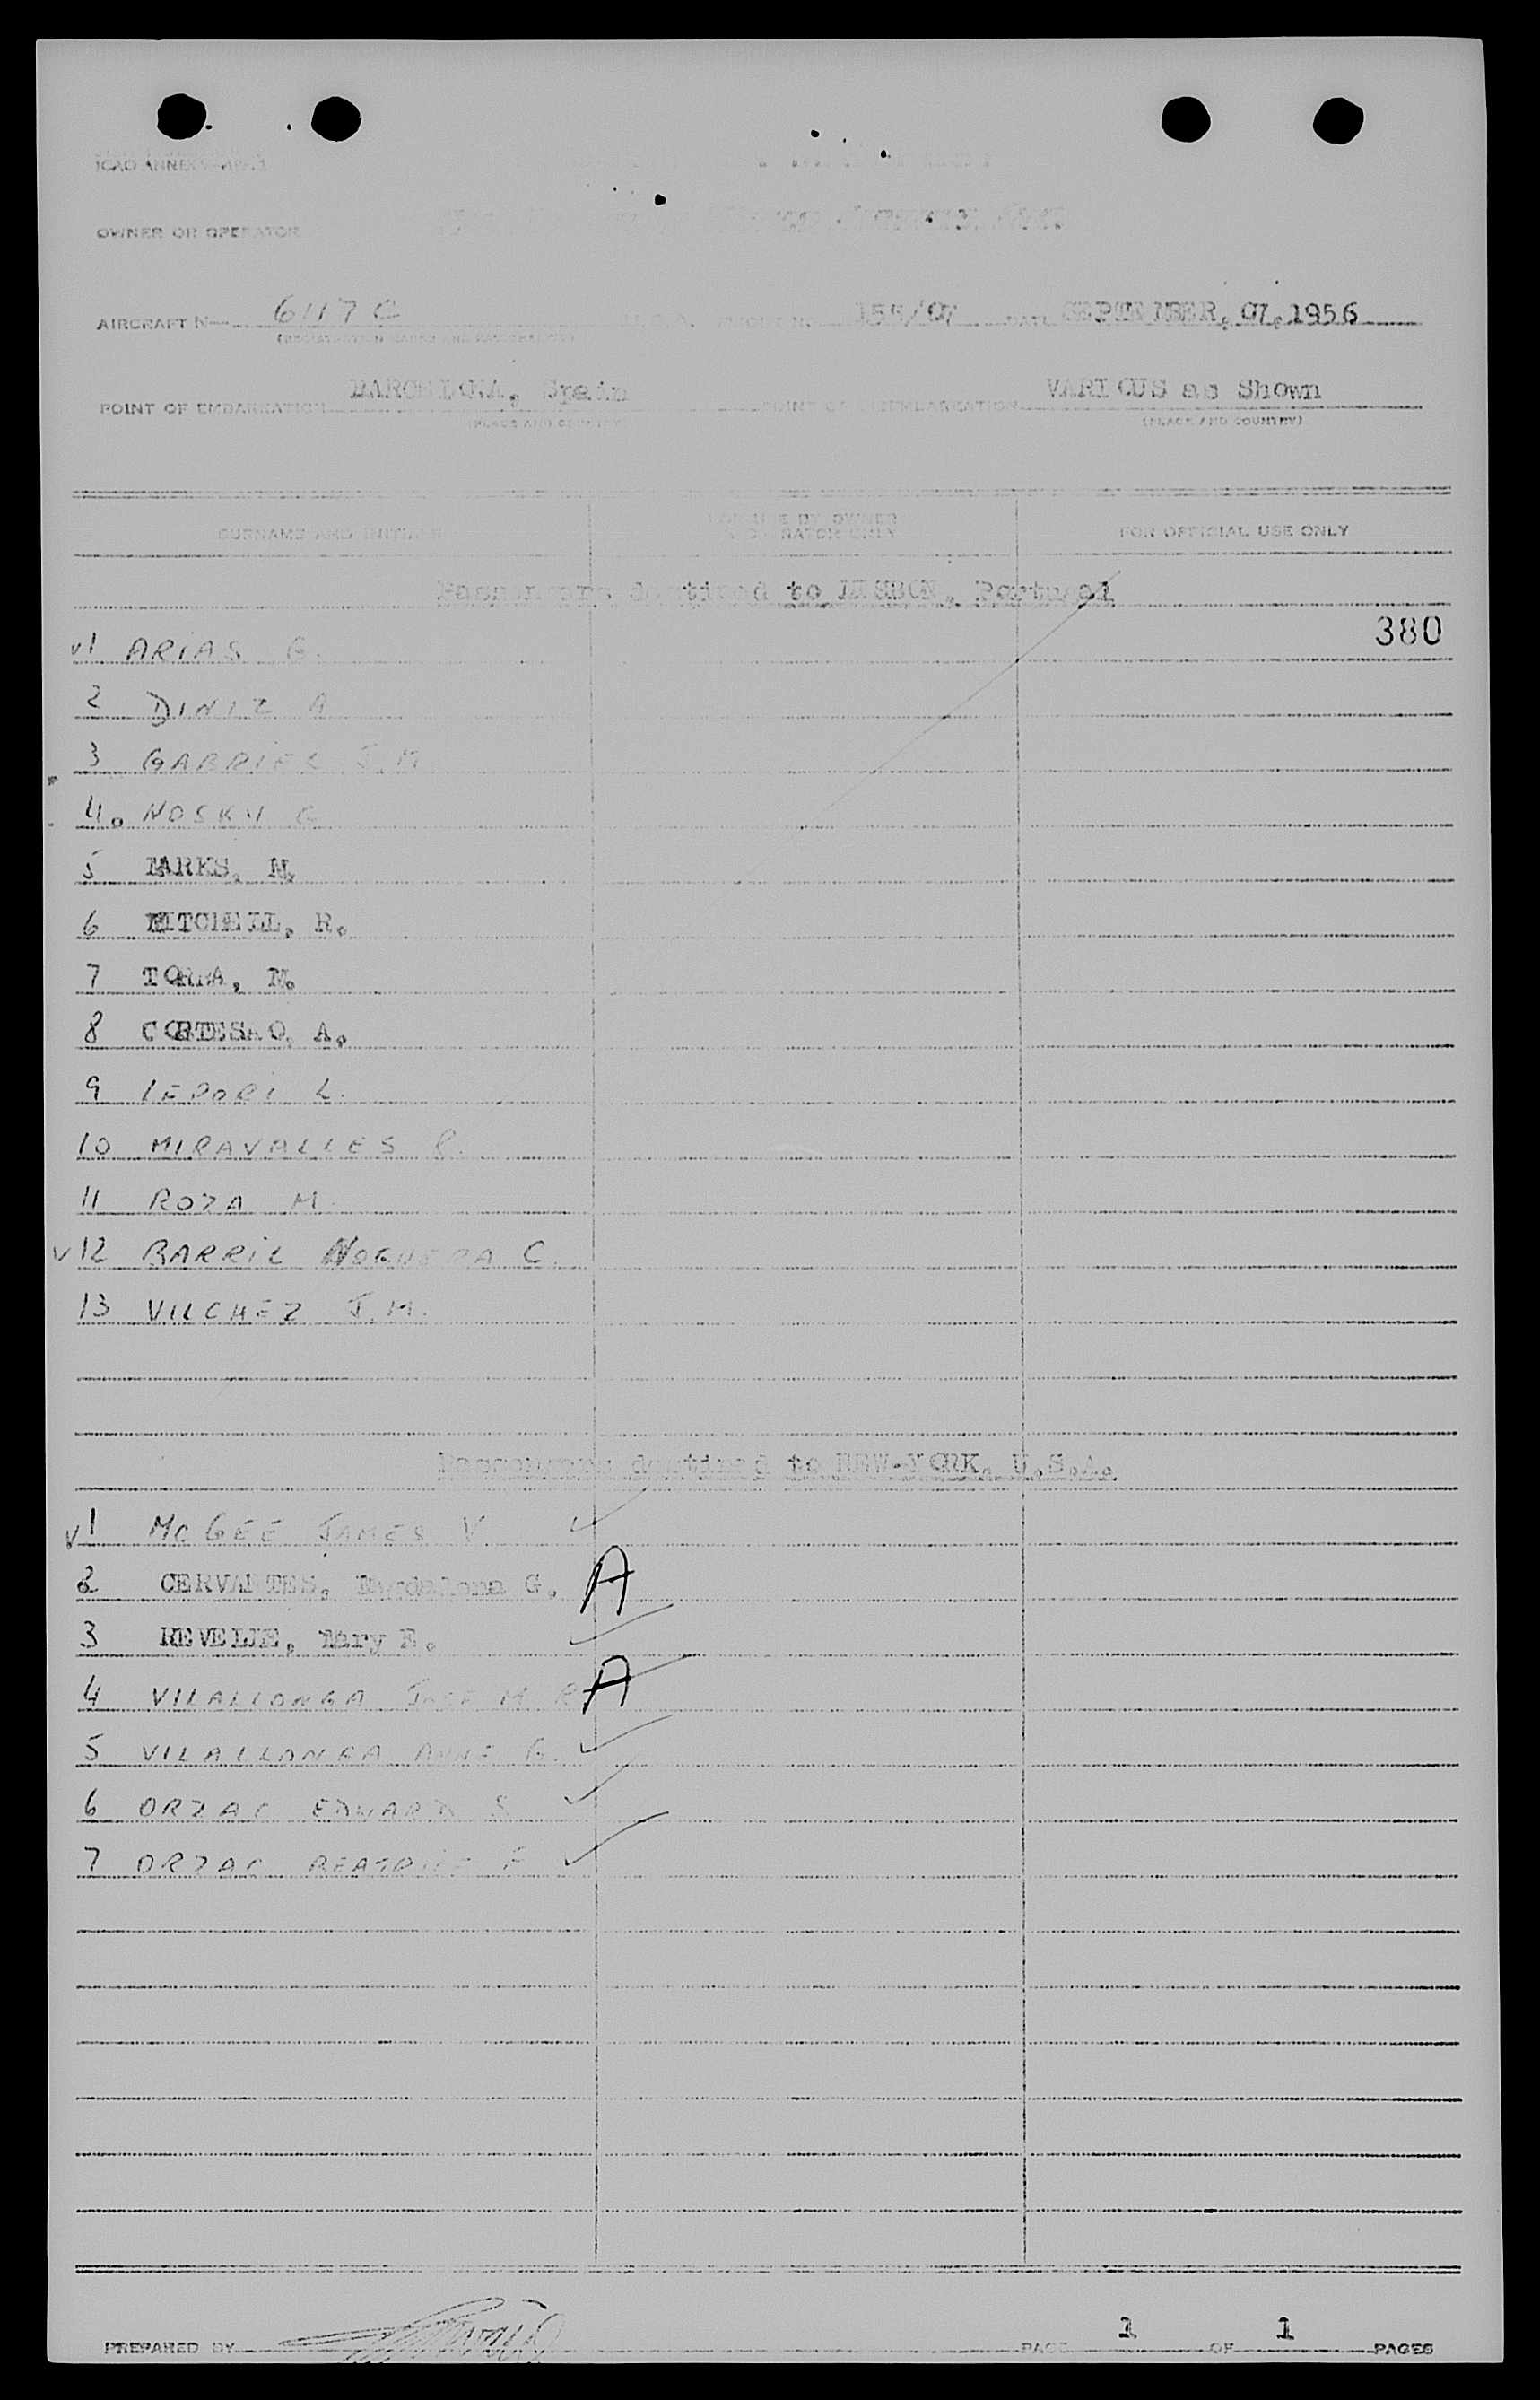 ICAO ANNEX
OWNER OR OPERATOR
AIRCRAFT N— 6117C 155/07 DATE SEPTEMBER, 07, 1956
POINT OF EMBARKATION BARCELONA, Spain VARIOUS as Shown
(PLACE AND COUNTRY) (PLACE AND COUNTRY)
SURNAME AND INITIALS FOR USE BY OWNER OR OPERATOR ONLY FOR OFFICIAL USE ONLY
Passengers destined to LISBON, Portugal
380
v1 ARIAS G.
2 DINIZ A
3 GABRIEL J.M
4. NOSKY G
5 MARKS, M.
6 MITCHELL, R.
7 TORRA, M.
8 CORTESAO, A.
9 LEPORI L.
10 MIRAVALLES R.
11 ROZA M
v12 BARRIL NOGUERA C.
13 VILCHEZ J.M.
Passengers destined to NEW-YORK, U.S.A.
v1 MC GEE JAMES V
2 CERVANTES, Magdalena G. A
3 REVELLE, Mary E.
4 VILALLONGA JOSE M R A
5 VILALLONGA ANNE G.
6 ORZAC EDWARD S
7 ORZAC BEATRICE F
PREPARED BY PAGE 1 OF 1 PAGES